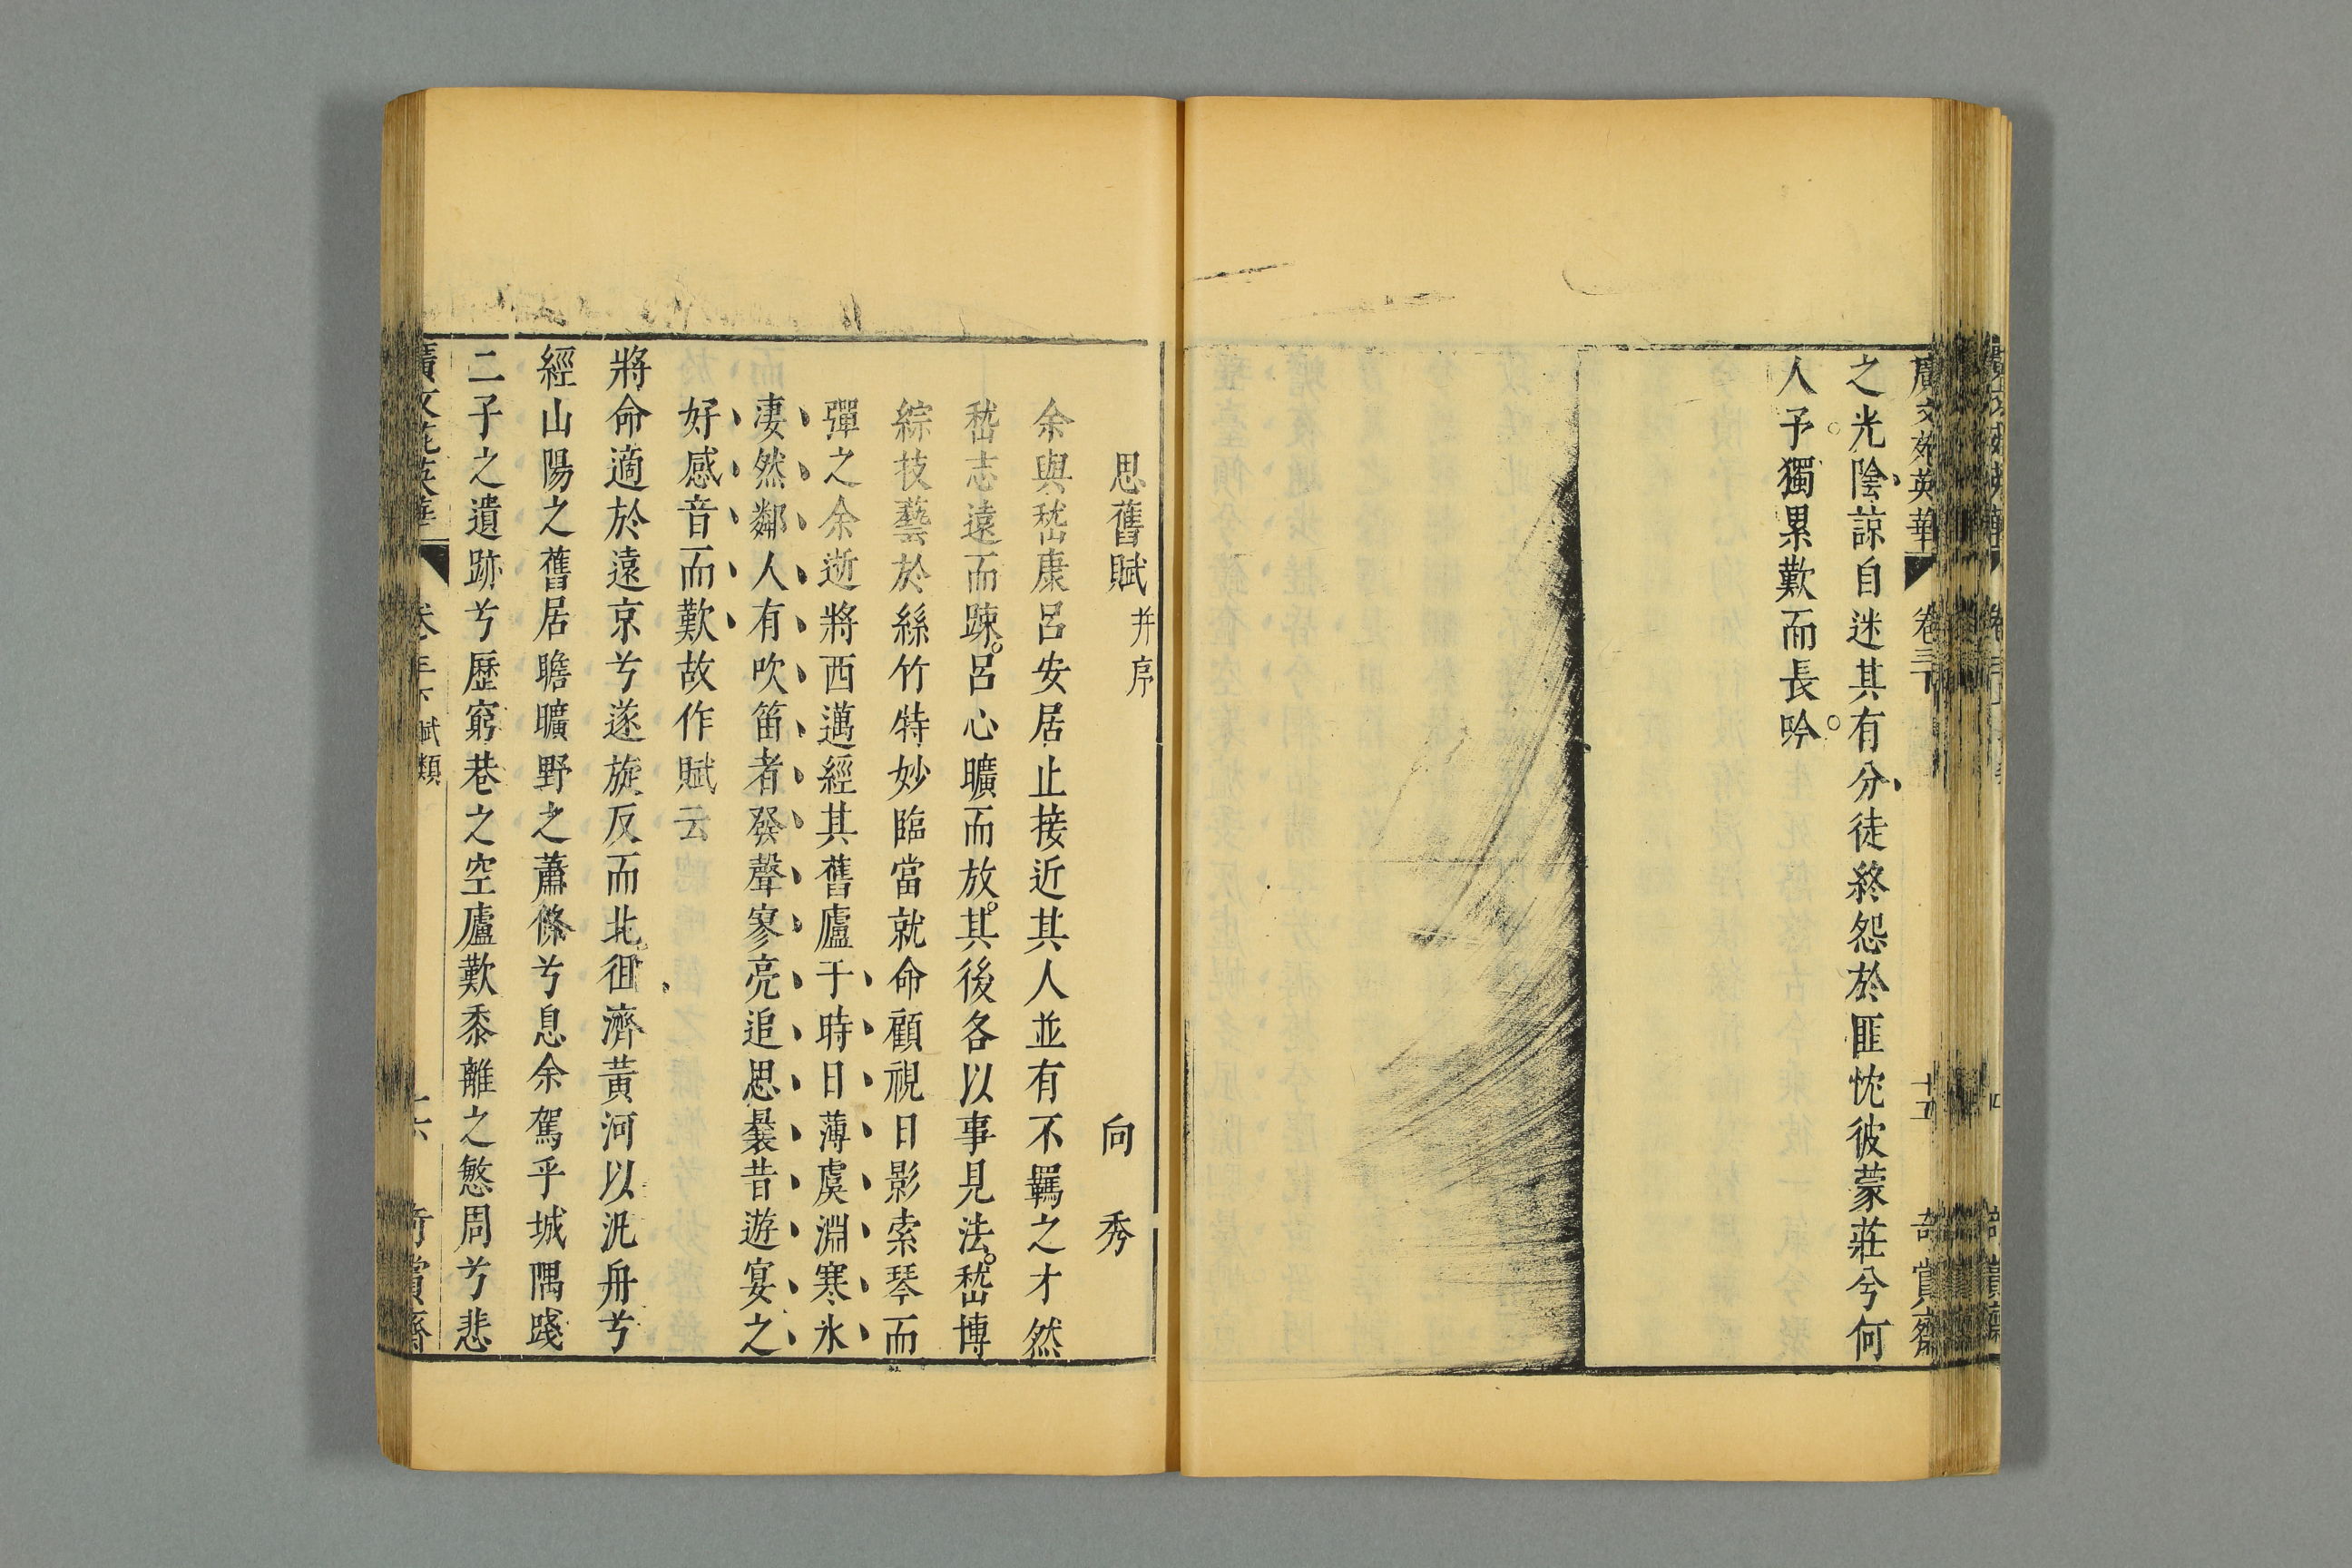 廣文苑英華 卷三下 十五 奇賞齋
之光陰諒自迷其有分徒終怨於匪忱彼蒙莊兮何
人予獨累歎而長吟
思舊賦 并序 向秀
余與嵇康呂安居止接近其人並有不羈之才然
嵇志遠而踈呂心曠而放其後各以事見法嵇博
綜技藝於絲竹特妙臨當就命顧視日影索琴而
彈之余逝將西邁經其舊廬于時日薄虞淵寒氷
凄然鄰人有吹笛者發聲寥亮追思曩昔遊宴之
好感音而歎故作賦云
將命適於遠京兮遂旋反而北徂濟黃河以汎舟兮
經山陽之舊居瞻曠野之蕭條兮息余駕乎城隅踐
二子之遺跡兮歷窮巷之空廬歎黍離之愍周兮悲
廣文苑英華 卷三下 賦類 十六 奇賞齋